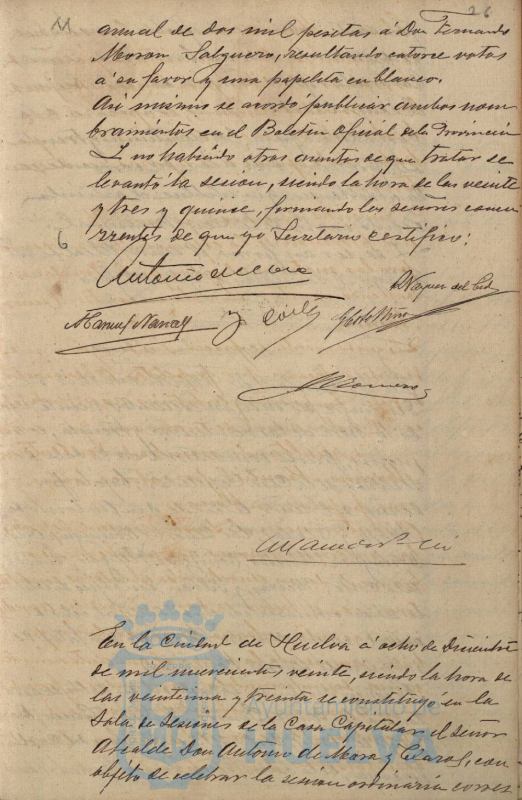 26
11
anual de dos mil pesetas á Don Fernando
Moron Salguero, resultando catorce votos
á su favor y una papeleta en blanco.
Asi mismo se acordó publicar ambos nom-
bramientos en el Boletin Oficial de la Provincia
Y no habiendo otros asuntos de que tratar se
levantó la sesion, siendo la hora de las veinte
y tres y quince, firmando los señores concu-
6
rrentes de que yo Secretario certifico:
Antonio de Mora
Vazquez del Cid
Manuel Narvaez
y Cortés
Romero
En la Ciudad de Huelva á ocho de Diciembre
de mil novecientos veinte, siendo la hora de
las veintiuna y treinta se constituyó en la
Sala de Sesiones de la Casa Capitular el señor
Alcalde Don Antonio de Mora y Claros, con
objeto de celebrar la sesion ordinaria corres
AYUNTAMIENTO DE
HUELVA